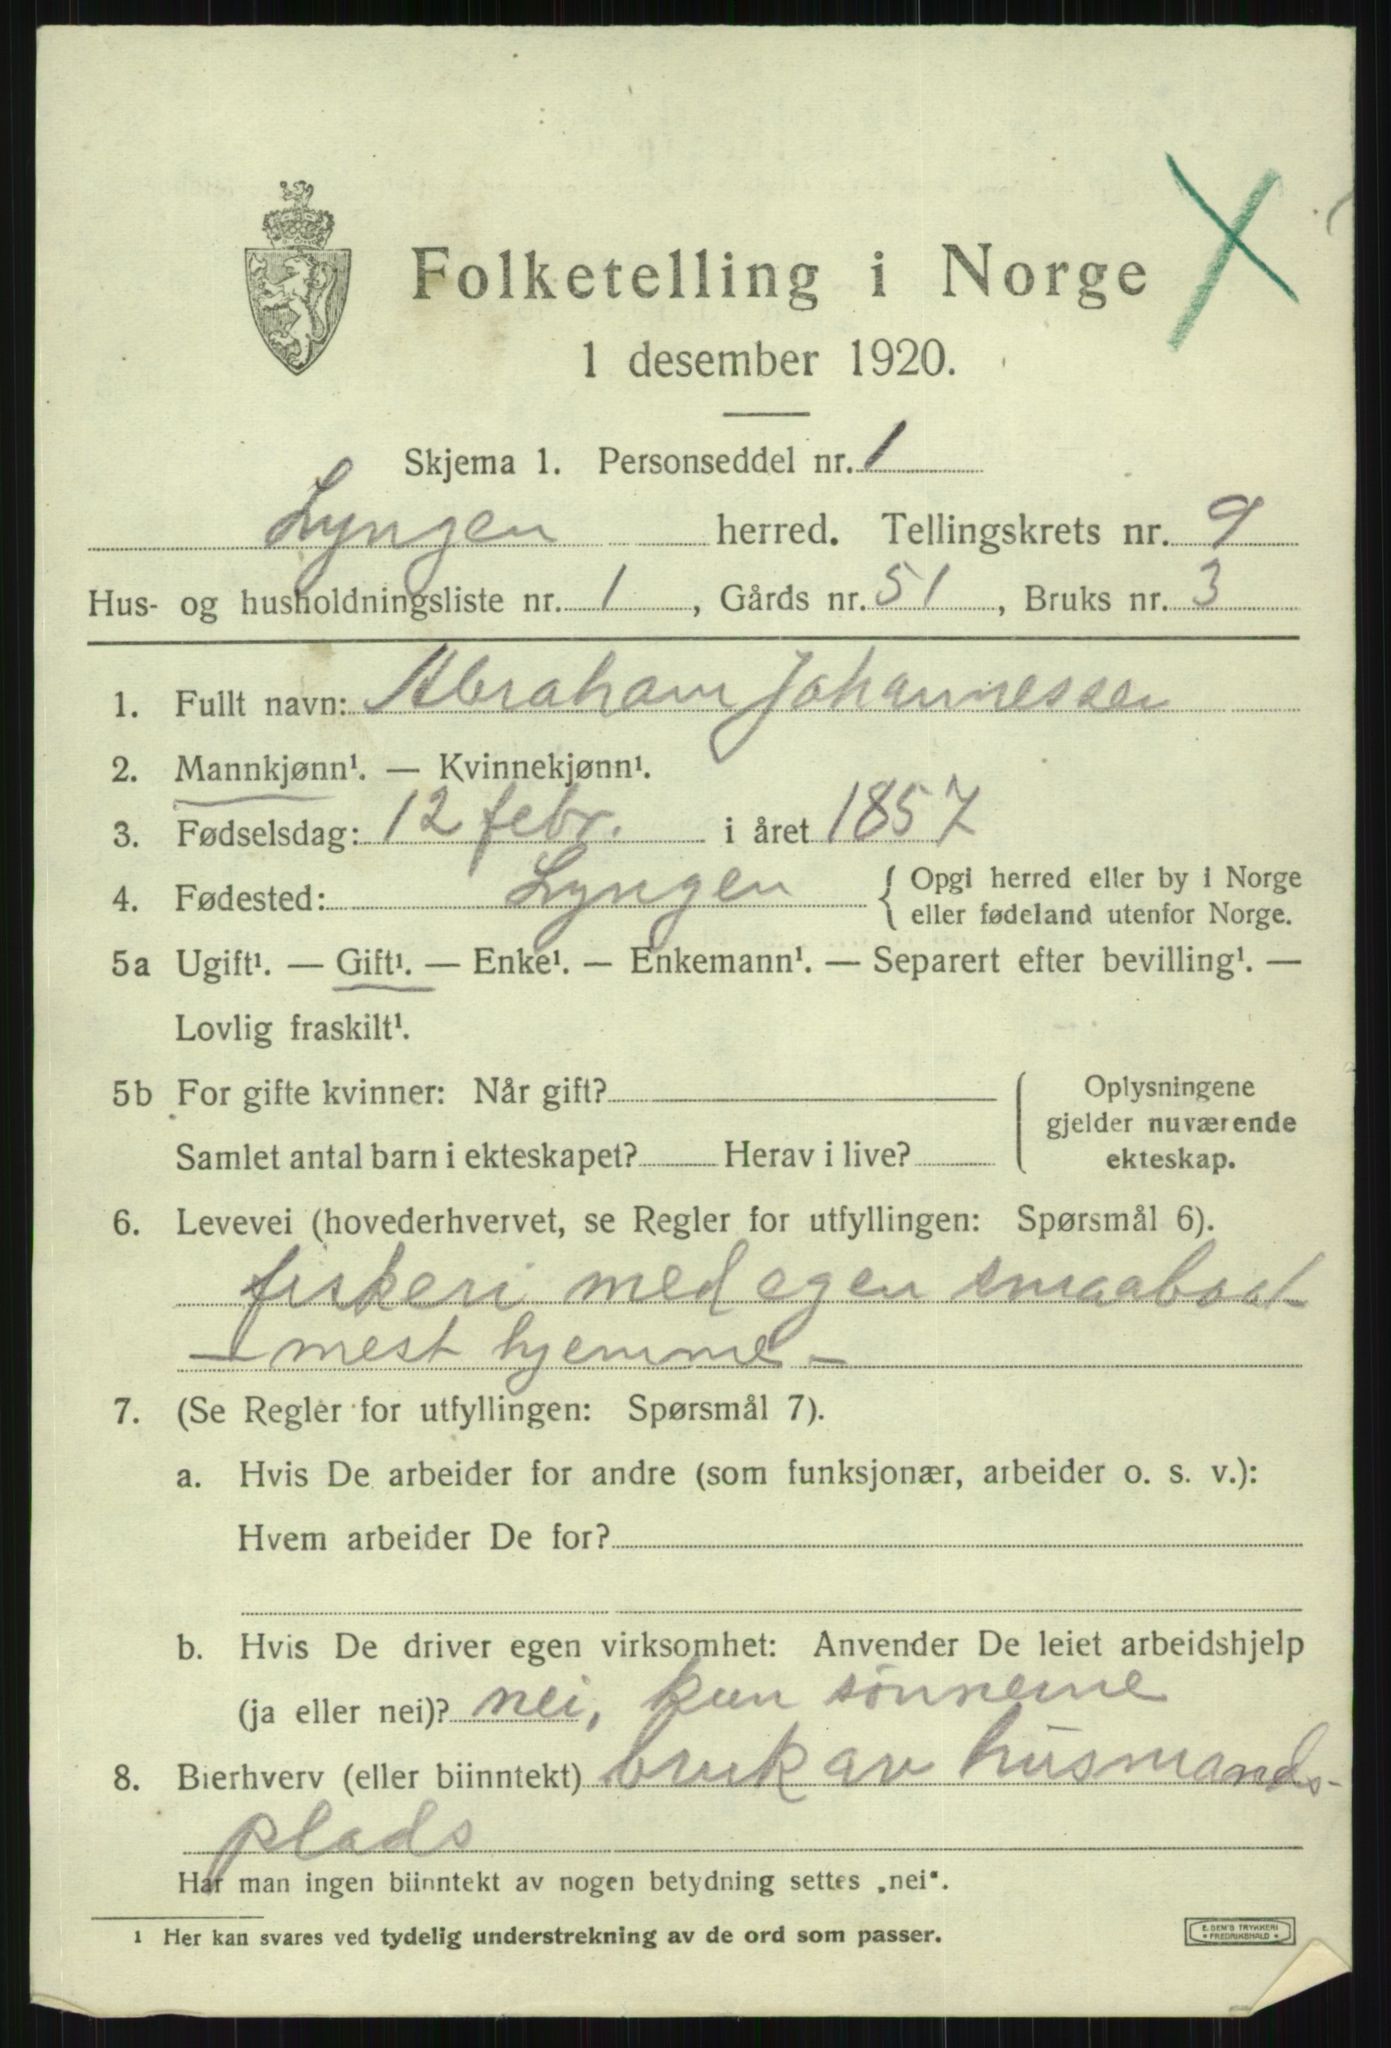 Folketelling i Norge
1 desember 1920.
Skjema 1. Personseddel nr. 1
Lyngen herred. Tellingskrets nr. 9
Hus- og husholdningsliste nr. 1, Gårds nr. 51, Bruks nr. 3
1. Fullt navn: Abraham Johannessen
2. Mannkjønn¹. — Kvinnekjønn¹.
3. Fødselsdag: 12 febr. i året 1857
4. Fødested: Lyngen { Opgi herred eller by i Norge
eller fødeland utenfor Norge.
5a Ugift¹. — Gift¹. — Enke¹. — Enkemann¹. — Separert efter bevilling¹. —
Lovlig fraskilt¹.
5b For gifte kvinner: Når gift?
Samlet antal barn i ekteskapet? Herav i live?
Oplysningene
gjelder nuværende
ekteskap.
6. Levevei (hovederhvervet, se Regler for utfyllingen: Spørsmål 6).
fiskeri med egen smaabaat
– mest hjemme –
7. (Se Regler for utfyllingen: Spørsmål 7).
a. Hvis De arbeider for andre (som funksjonær, arbeider o. s. v.):
Hvem arbeider De for?
b. Hvis De driver egen virksomhet: Anvender De leiet arbeidshjelp
(ja eller nei)? nei, kun sønnerne
8. Bierhverv (eller biinntekt) bruk av husmands-
plads
Har man ingen biinntekt av nogen betydning settes „nei“.
¹ Her kan svares ved tydelig understrekning av de ord som passer.
E. SEM'S TRYKKERI
* FREDRIKSHALD *